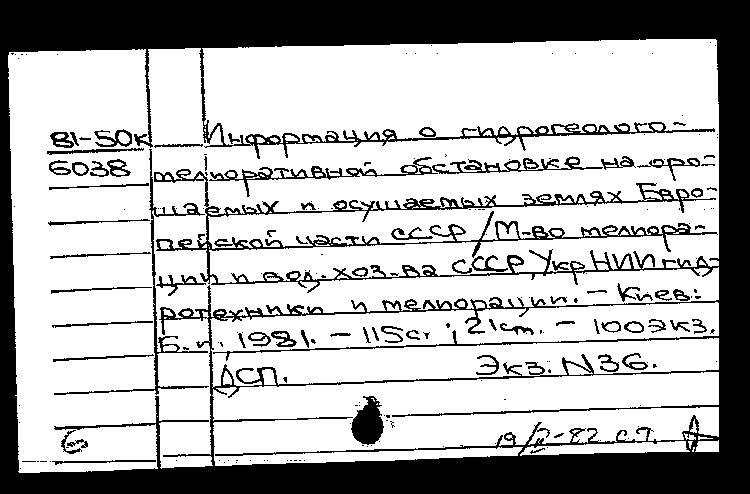 81-50к Информация о гидрогеолого-
6038 мелиоративной обстановке на оро-
шаемых и осушаемых землях Евро-
пейской части СССР / М-во мелиора-
ции и вод. хоз-ва СССР, Укр НИИ гид-
ротехники и мелиорации. - Киев:
Б.и. 1981. - 115 с. ; 21 см. - 100 экз.
ДСП. Экз. N36.
6 19/II-82 с.7.